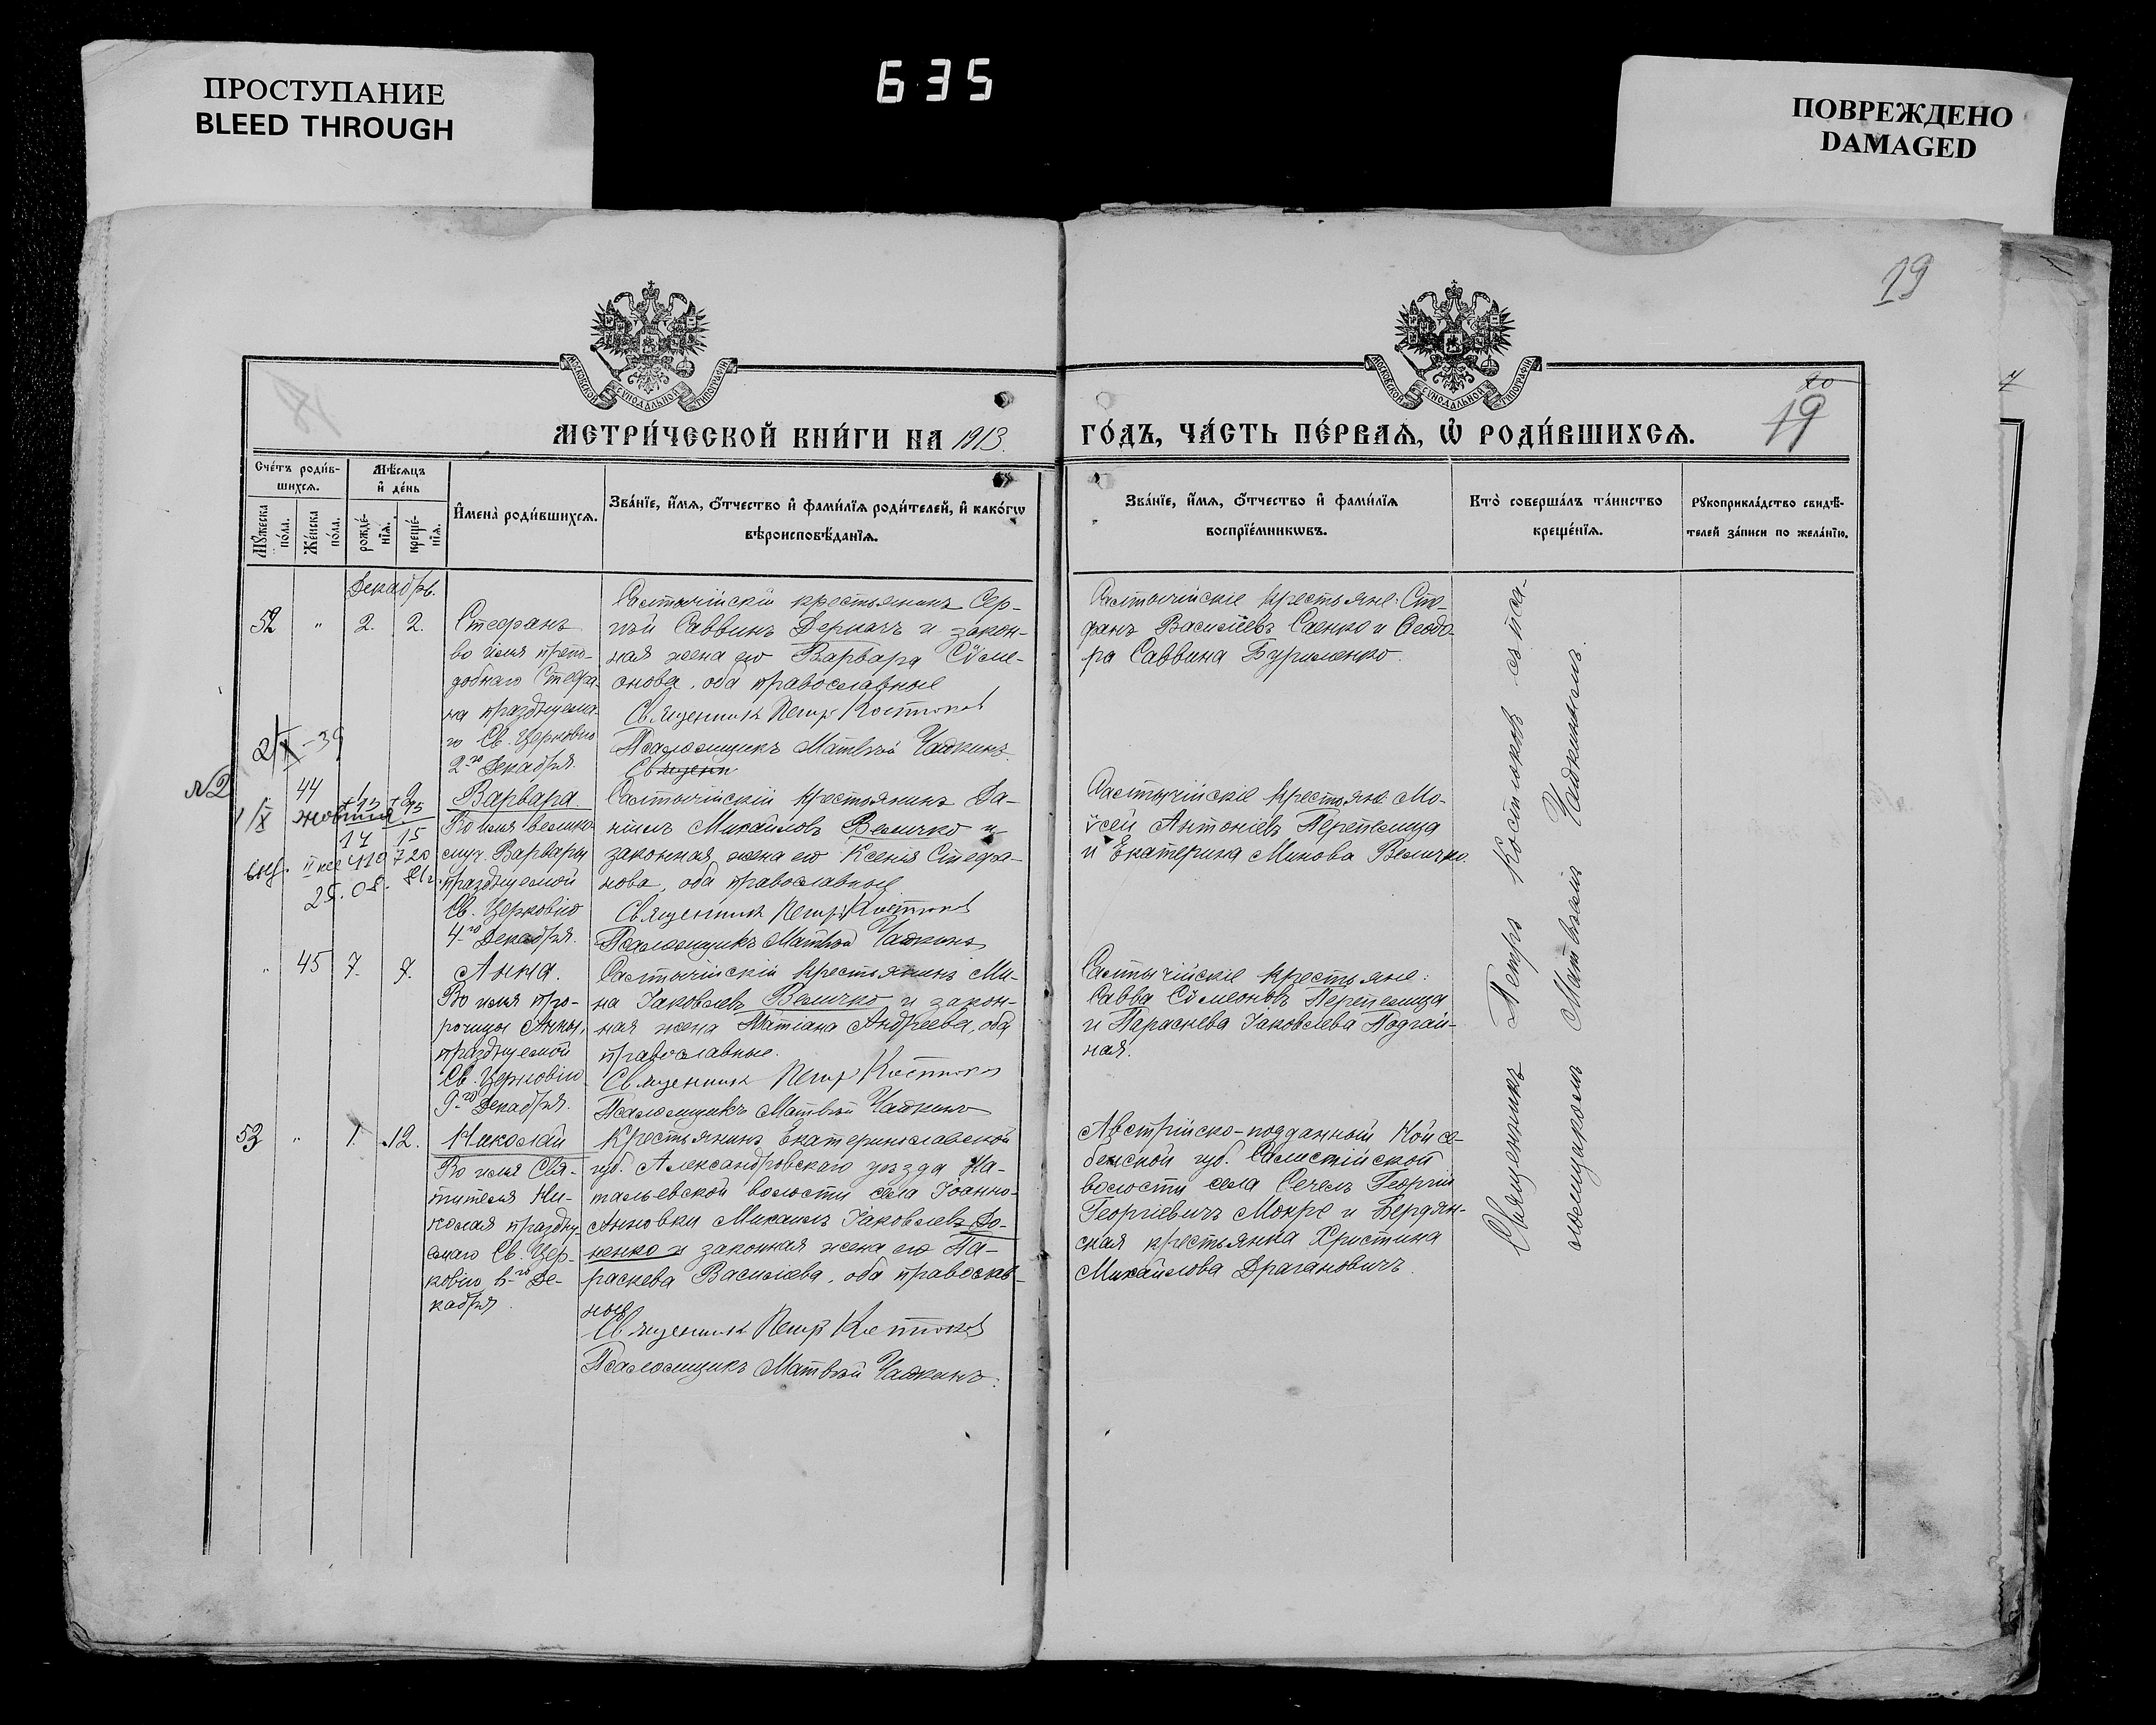 ПРОСТУПАНИЕ
BLEED THROUGH
635
ПОВРЕЖДЕНО
DAMAGED
19
МОСКОВСКОЙ СУНОДАЛЬНОЙ ТИПОГРАФІИ
МОСКОВСКОЙ СУНОДАЛЬНОЙ ТИПОГРАФІИ
МЕТРИ́ЧЕСКОЙ КНИ́ГИ НА 1913.
ГО́ДЪ, ЧА́СТЬ ПЕ́РВАѦ, Ѡ҆ РОДИ́ВШИХСѦ.
20
19
Сче́тъ роди́в-
шихсѧ.
Мꙋ́жеска
по́ла.
Же́нска
по́ла.
Мѣ́сѧцъ
и҆ де́нь
рожде́-
нїѧ.
креще́-
нїѧ.
И҆мена̀ роди́вшихсѧ.
Зва́нїе, и҆́мѧ, ѻ҆́тчество и҆ фами́лїѧ роди́телей, и҆ како́гѡ
вѣроисповѣ́данїѧ.
Зва́нїе, и҆́мѧ, ѻ҆́тчество и҆ фами́лїѧ
воспрїе́мникѡвъ.
Кто̀ соверша́лъ та́инство
креще́нїѧ.
Рꙋкоприкла́дство свидѣ́-
телей за́писи по жела́нїю.
Декабрь.
52 " 2. 2.
Стефанъ
во имя препо-
добнаго Стефа-
на празднуема-
го Св. Церковію
2-го Декабря.
Салтычійскій крестьянинъ Сер-
гій Саввинъ Деркачъ и закон-
ная жена его Варвара Сѵме-
онова, оба православные
Священникъ Петръ Костюковъ
Псаломщикъ Матвѣй Чашкинъ
Священн
Салтычійскіе крестьяне: Сте-
фанъ Васильевъ Саенко и Ѳеодо-
ра Саввина Бурименко.
2/X-39
№2
44
1/X
жовтня
14 15
25.08.
Варвара.
Во имя велико-
муч. Варвары
празднуемой
Св. Церковію
4-го Декабря.
Салтычійскій крестьянинъ Да-
ніилъ Михайловъ Величко и
законная жена его Ксенія Стефа-
нова, оба православные
Священникъ Петръ Костюковъ
Псаломщикъ Матвѣй Чашкинъ
Салтычійскіе крестьяне: Мо-
ѵсей Антоніевъ Перепелица
и Екатерина Минова Величко.
" 45 7. 8.
Анна.
Во имя про-
рочицы Анны,
празднуемой
Св. Церковію
9-го Декабря.
Салтычійскій крестьянинъ Ми-
на Іаковлевъ Величко и закон-
ная жена Татіана Андреева, оба
православные.
Священникъ Петръ Костюковъ
Псаломщикъ Матвѣй Чашкинъ
Салтычійскіе крестьяне:
Савва Сѵмеоновъ Перепелица
и Параскева Іаковлева Подгай-
ная.
53 " 1. 12.
Николай
Во имя Свя-
тителя Ни-
колая праздну-
емаго Св. Цер-
ковію 6-го Де-
кабря.
Крестьянинъ Екатеринославской
губ. Александровскаго уѣзда На-
тальевской волости села Іоанно-
Анновки Михаилъ Іаковлевъ До-
ненко и законная жена его Па-
раскева Васильева, оба православ-
ные
Священникъ Петръ Костюковъ
Псаломщикъ Матвѣй Чашкинъ.
Австрійско-подданный
губ. Салистійской
волости села Сечелъ Георгій
Георгіевичъ Мокре и Бердян-
ская крестьянка Христина
Михайлова Драгановичъ.
Священникъ Петръ Костюковъ съ пса-
ломщикомъ Матвѣемъ Чашкинымъ.